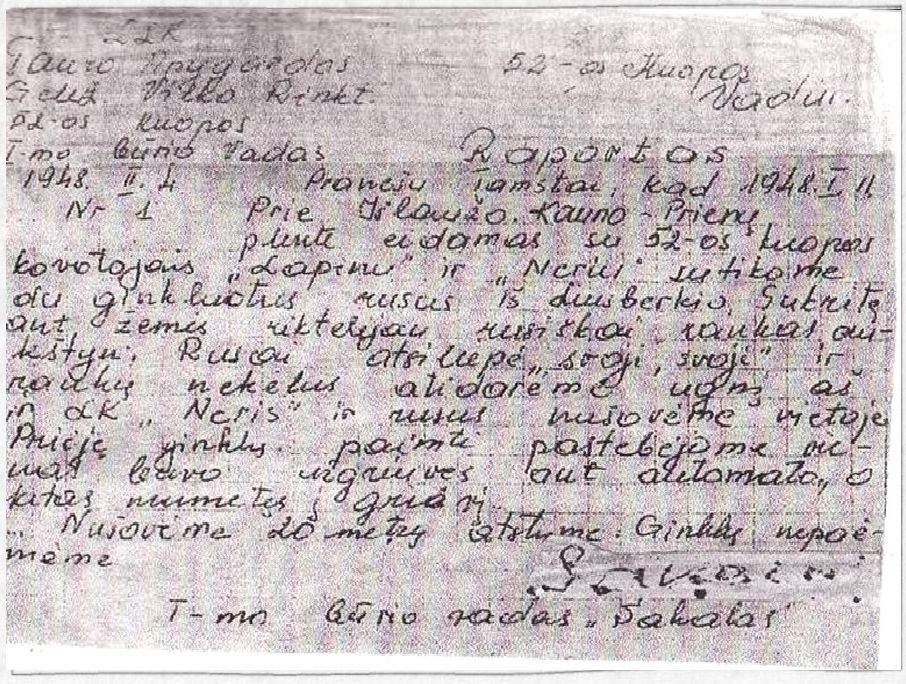 LLK
Tauro Apygardos 52-os Kuopos
Gelež. Vilko Rinkt. Vadui.
52-os kuopos
I-mo būrio vadas Raportas
1948. II. 4 Pranešu Tamstai, kad 1948. I. 11
Nr 1 Prie Išlaužo. Kauno-Prienų
plente eidamas su 52-os kuopos
kovotojais „Lapinu" ir „Neriu" sutikome
du ginkluotus rusus iš Sukritę
ant žemės riktelėjau rusiškai rankas au-
kštyn. Rusai atsiliepė „svoji, svoji" ir
rankų nekėlus atidarėme ugnį aš
ir LK „Neris" ir rusus nušovėme vietoje
Priėję ginklų paimti pastebėjome
buvo užgriuvęs ant automato, o
kitas numetęs į griovį.
Nušovėme 20 metrų atstume. Ginklų nepaė-
mėme
I-mo būrio vadas „Šakalas"